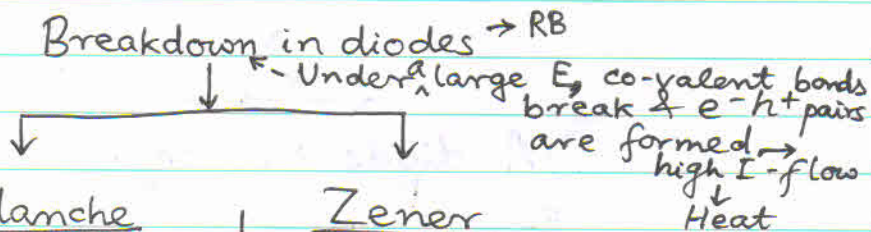 Breakdown in diodes → RB
- Under a large E, co-valent bonds
break & e⁻h⁺ pairs
are formed →
high I-flow
↓
Heat
lanche | Zener